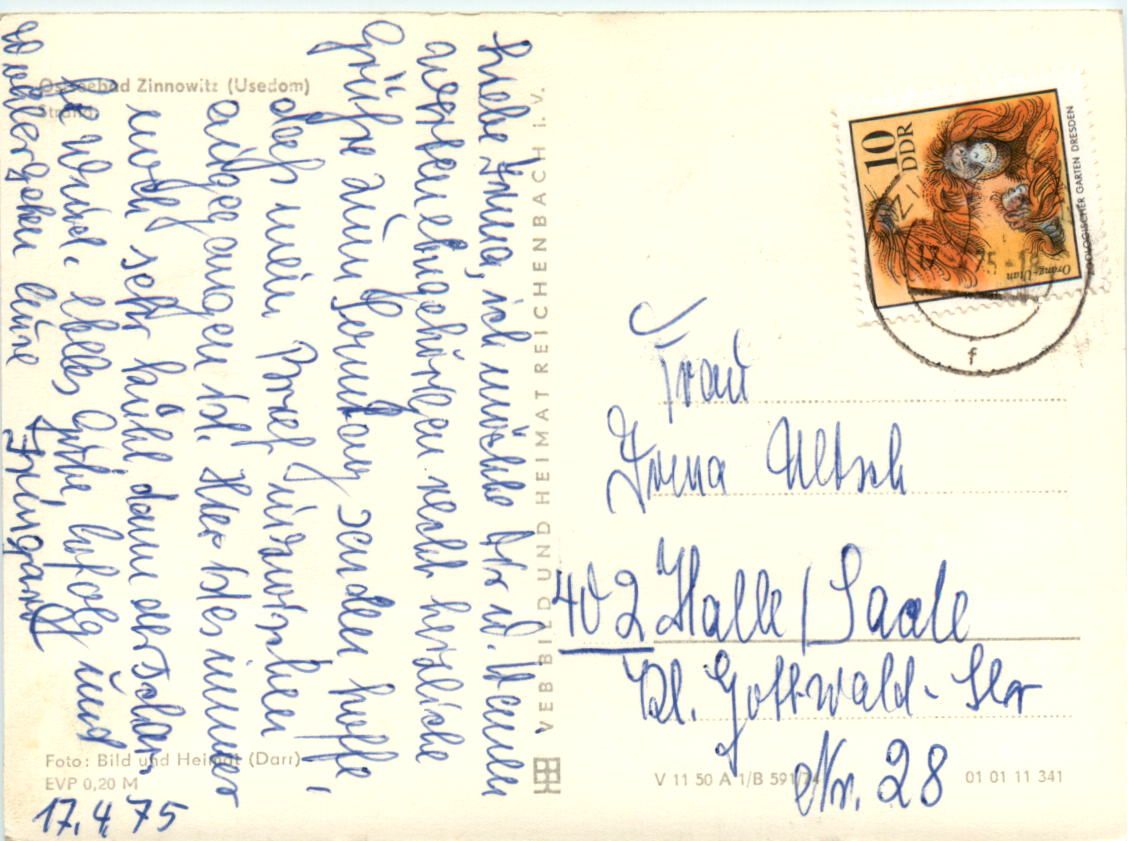 Ostseebad Zinnowitz (Usedom)
Strand
Liebe Irma, ich möchte Dir u. Deinen
werten Angehörigen recht herzliche
Grüße zum Sonntag senden hoffe,
daß mein Brief inzwischen
angegangen ist. Hier ist es immer
noch sehr kühl, dann der schar-
fe Wind. alles Gute, Erfolg und
Wohlergehen Eure
Irmgard
Foto: Bild und Heimat (Darr)
EVP 0,20 M
17.4.75
VEB BILD UND HEIMAT REICHENBACH i. V.
10
DDR
Orang-Utan
ZOOLOGISCHER GARTEN DRESDEN
f
Frau
Irma Ultsch
402 Halle/Saale
Kl. Gottwald-Str
Nr. 28
V 11 50 A 1/B 591/74 01 01 11 341